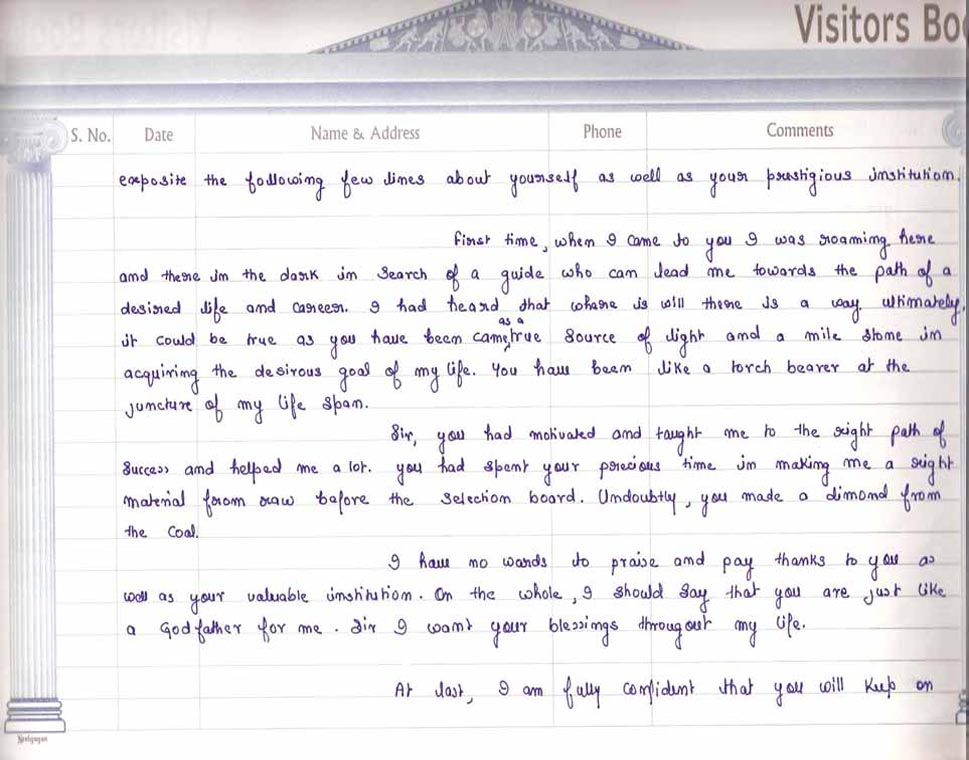 Visitors Bo
S. No. Date Name & Address Phone Comments
exposite the following few lines about yourself as well as your prestigious institution.
First time, when I came to you I was roaming here
and there in the dark in search of a guide who can lead me towards the path of a
desired life and career. I had heard that where is will there is a way ultimately,
as a
it could be true as you have been came true source of light and a mile stone in
acquiring the desirous goal of my life. You have been like a torch bearer at the
juncture of my life span.
Sir, you had motivated and taught me to the right path of
success and helped me a lot. you had spent your precious time in making me a right
material from raw before the selection board. Undoubtly, you made a dimond from
the coal.
I have no words to praise and pay thanks to you as
well as your valuable institution. On the whole, I should say that you are just like
a Godfather for me. Sir I want your blessings througout my life.
At last, I am fully confident that you will keep on